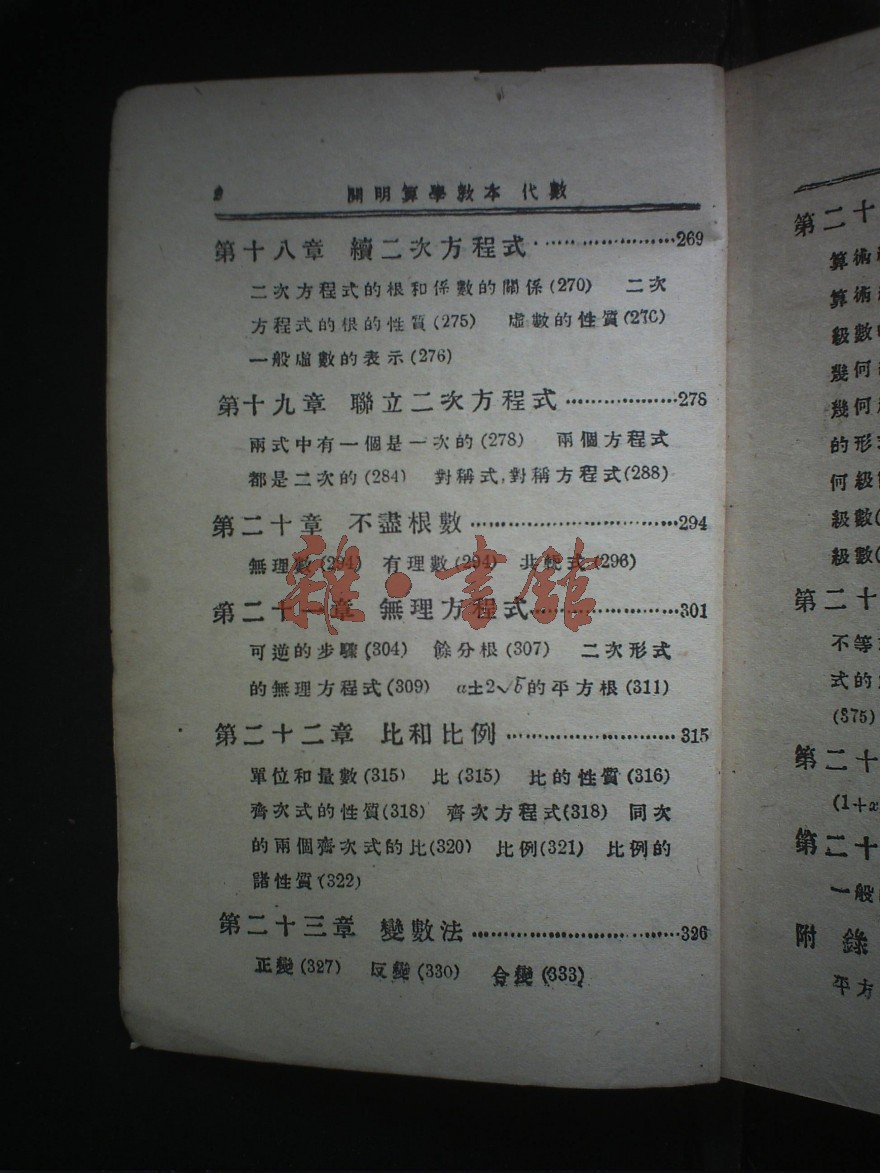 2 開明算學敎本 代數
第十八章 續二次方程式 ······················269
二次方程式的根和係數的關係(270) 二次
方程式的根的性質(275) 虛數的性質(276)
一般虛數的表示(276)
第十九章 聯立二次方程式 ··················278
兩式中有一個是一次的(278) 兩個方程式
都是二次的(284) 對稱式,對稱方程式(288)
第二十章 不盡根數 ······························294
無理數(294) 有理數(294) 共軛式(296)
第二十一章 無理方程式 ······················301
可逆的步驟(304) 餘分根(307) 二次形式
的無理方程式(309) a±2√b的平方根(311)
第二十二章 比和比例 ·························315
單位和量數(315) 比(315) 比的性質(316)
齊次式的性質(318) 齊次方程式(318) 同次
的兩個齊次式的比(320) 比例(321) 比例的
諸性質(322)
第二十三章 變數法 ······························326
正變(327) 反變(330) 合變(333)
雜·書館
第二十
算術
算術
級數
幾何
幾何
的形
何級
級數(
級數(
第二十
不等
式的
(375)
第二十
(1+x
第二十
一般
附錄
平方